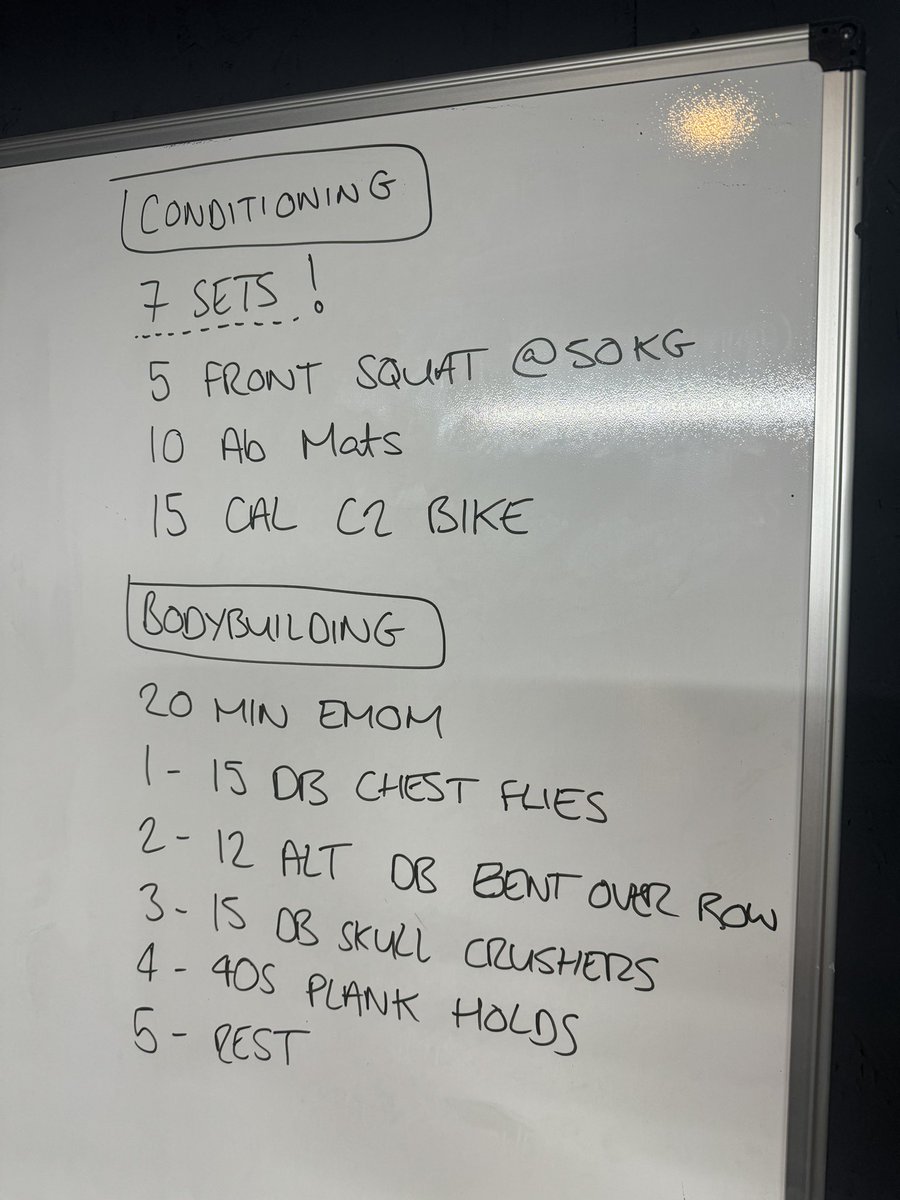 CONDITIONING
7 SETS !
5 FRONT SQUAT @50KG
10 Ab Mats
15 CAL C2 BIKE
BODYBUILDING
20 MIN EMOM
1 - 15 DB CHEST FLIES
2 - 12 ALT DB BENT OVER ROW
3 - 15 DB SKULL CRUSHERS
4 - 40S PLANK HOLDS
5 - REST